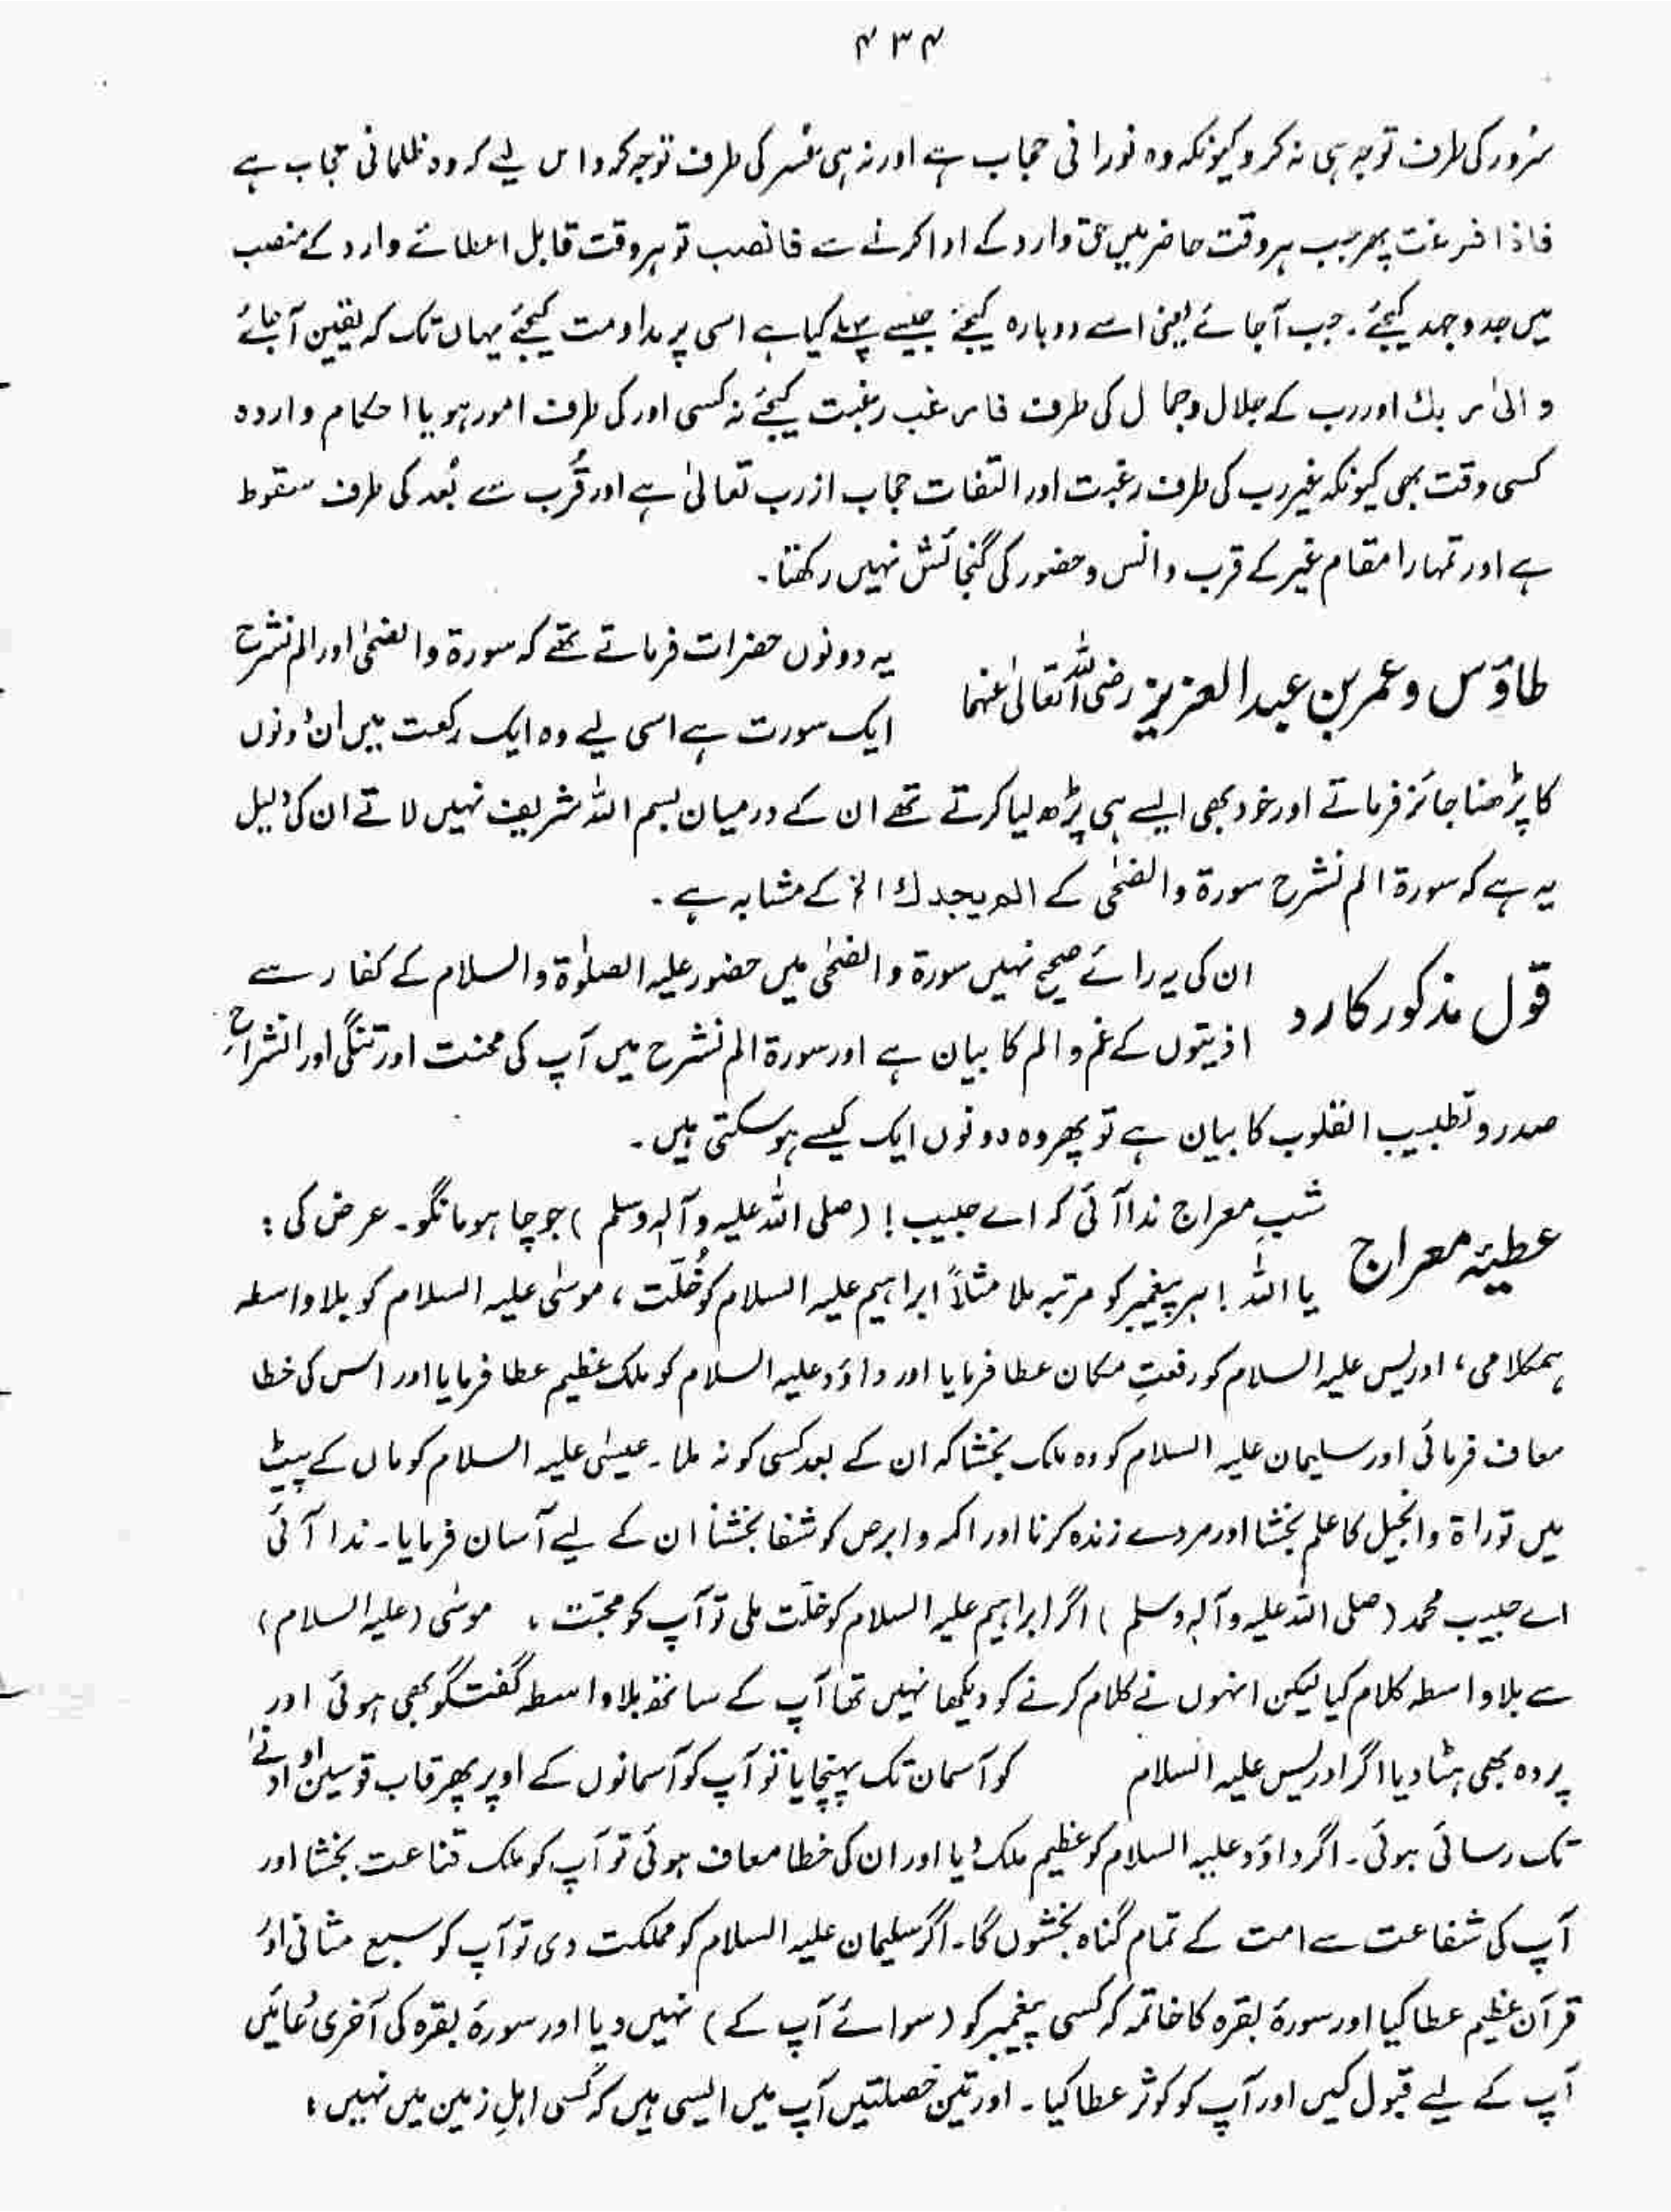 ۴۳۴
سُرور کی طرف توجہ ہی نہ کرو کیونکہ وہ نورانی حجاب ہے اور نہ ہی عُسر کی طرف توجہ کرو اس لیے کہ وہ ظلمانی حجاب ہے
فاذا فرغت پھر جب ہر وقت حاضر میں حق وارد کے ادا کرنے سے فانصب تو ہر وقت قابل اعطائے وارد کے منصب
میں جدوجہد کیجئے۔ جب آجائے یعنی اسے دوبارہ کیجئے جیسے پہلے کیا ہے اسی پر مداومت کیجئے یہاں تک کہ یقین آجائے
والیٰ ربك اور رب کے جلال و جمال کی طرف فارغب رغبت کیجئے نہ کسی اور کی طرف امور ہو یا احکام واردہ
کسی وقت بھی کیونکہ غیر رب کی طرف رغبت اور التفات حجاب از رب تعالیٰ ہے اور قُرب سے بُعد کی طرف سقوط
ہے اور تمہارا مقام غیر کے قرب و انس و حضور کی گنجائش نہیں رکھتا۔
طاؤس و عمر بن عبد العزیز رضی اللہ تعالیٰ عنہما یہ دونوں حضرات فرماتے تھے کہ سورۃ والضحیٰ اور الم نشرح
ایک سورت ہے اسی لیے وہ ایک رکعت میں ان دونوں
کا پڑھنا جائز فرماتے اور خود بھی ایسے ہی پڑھ لیا کرتے تھے ان کے درمیان بسم اللہ شریف نہیں لاتے ان کی دلیل
یہ ہے کہ سورۃ الم نشرح سورۃ والضحیٰ کے الم یجدك الخ کے مشابہ ہے۔
قول مذکور کا رد ان کی یہ رائے صحیح نہیں سورۃ والضحیٰ میں حضور علیہ الصلوٰۃ والسلام کے کفار سے
اذیتوں کے غم و الم کا بیان ہے اور سورۃ الم نشرح میں آپ کی محنت اور تنگی اور انشراحِ
صدر و تطبیب القلوب کا بیان ہے تو پھر وہ دونوں ایک کیسے ہو سکتی ہیں۔
عطیۂ معراج شبِ معراج ندا آئی کہ اے حبیب! (صلی اللہ علیہ وآلہٖ وسلم) جو چاہو مانگو۔ عرض کی:
یا اللہ! ہر پیغمبر کو مرتبہ ملا مثلاً ابراہیم علیہ السلام کو خُلّت، موسٰی علیہ السلام کو بلاواسطہ
ہمکلامی، ادریس علیہ السلام کو رفعتِ مکان عطا فرمایا اور داؤد علیہ السلام کو ملک عظیم عطا فرمایا اور اس کی خطا
معاف فرمائی اور سلیمان علیہ السلام کو وہ ملک بخشا کہ ان کے بعد کسی کو نہ ملا۔ عیسٰی علیہ السلام کو ماں کے پیٹ
میں توراۃ و انجیل کا علم بخشا اور مردے زندہ کرنا اور اکمہ و ابرص کو شفا بخشنا ان کے لیے آسان فرمایا۔ ندا آئی
اے حبیب محمد (صلی اللہ علیہ وآلہٖ وسلم) اگر ابراہیم علیہ السلام کو خلّت ملی تو آپ کو محبّت، موسٰی (علیہ السلام)
سے بلاواسطہ کلام کیا لیکن انہوں نے کلام کرنے کو دیکھا نہیں تھا آپ کے ساتھ بلاواسطہ گفتگو بھی ہوئی اور
پردہ بھی ہٹا دیا اگر ادریس علیہ السلام کو آسمان تک پہنچایا تو آپ کو آسمانوں کے اوپر پھر قاب قوسین او ادنیٰ
تک رسائی ہوئی۔ اگر داؤد علیہ السلام کو عظیم ملک دیا اور ان کی خطا معاف ہوئی تو آپ کو ملک قناعت بخشا اور
آپ کی شفاعت سے امت کے تمام گناہ بخشوں گا۔ اگر سلیمان علیہ السلام کو مملکت دی تو آپ کو سبع مثانی اور
قرآن عظیم عطا کیا اور سورۂ بقرہ کا خاتمہ کہ کسی پیغمبر کو (سوائے آپ کے) نہیں دیا اور سورۂ بقرہ کی آخری دُعائیں
آپ کے لیے قبول کیں اور آپ کو کوثر عطا کیا۔ اور تین خصلتیں آپ میں ایسی ہیں کہ کسی اہلِ زمین میں نہیں: